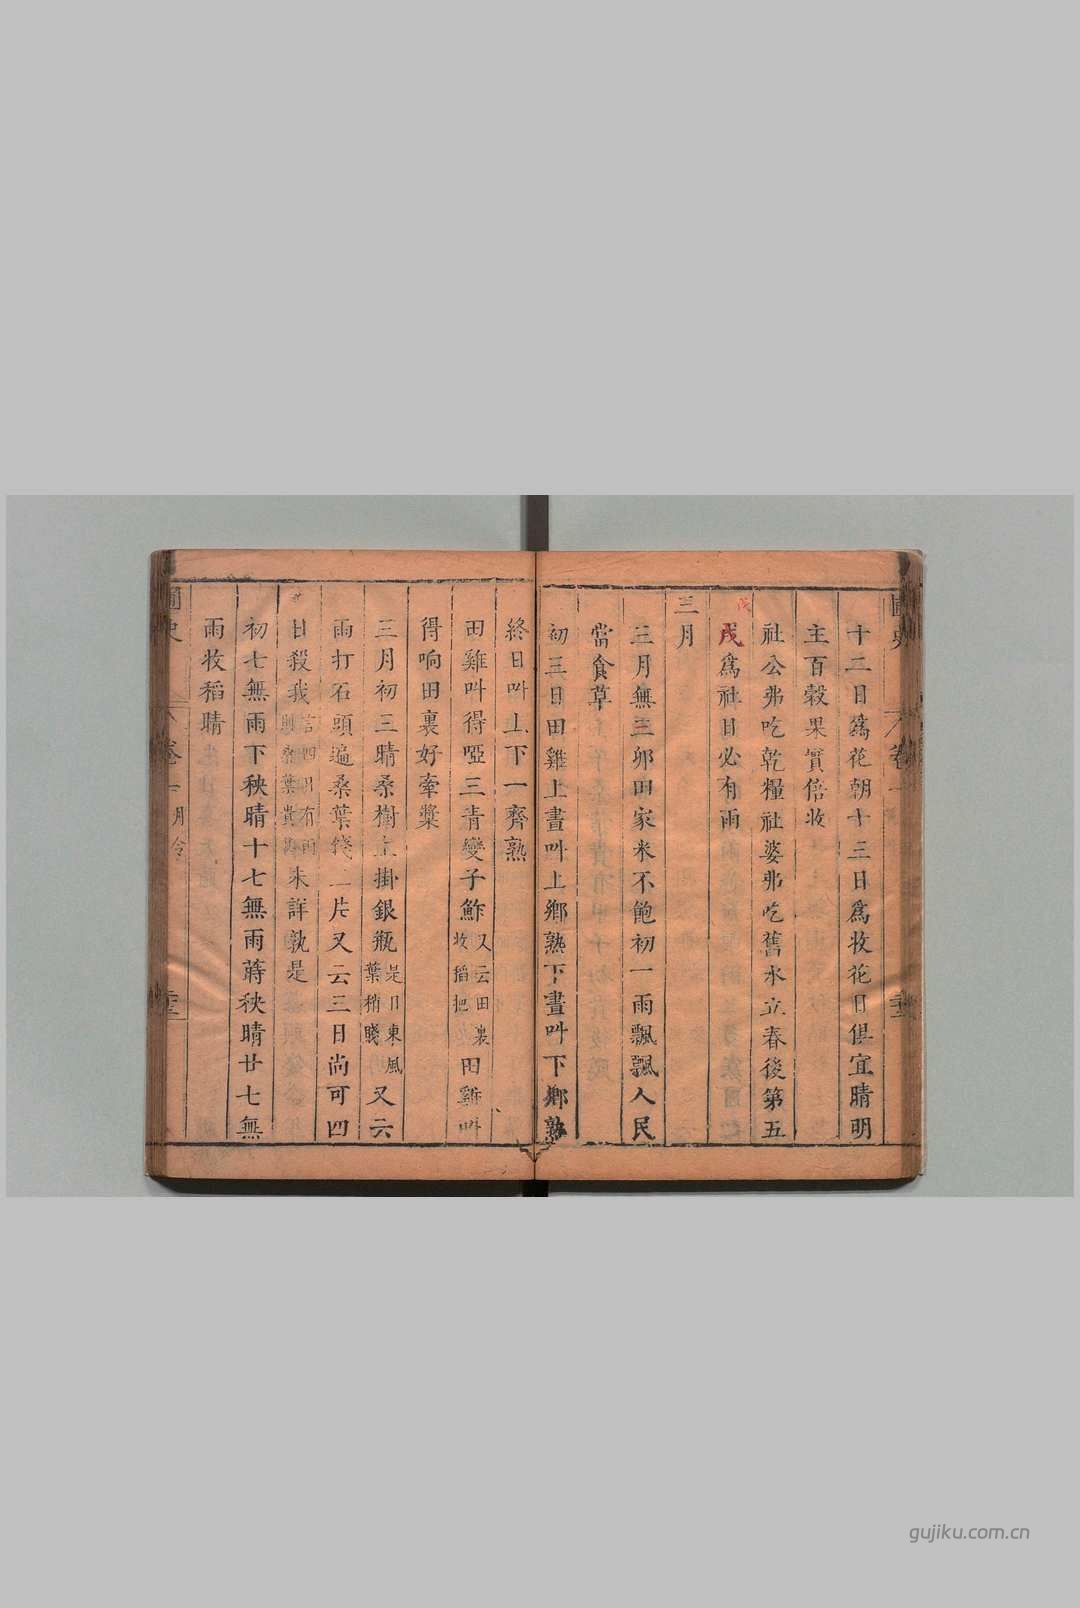 十二日爲花朝十三日爲收花日俱宜晴明
主百穀果實倍收
社公弗吃乾糧社婆弗吃舊水立春後第五
戊爲社日必有雨
三月
三月無三卯田家米不飽初一雨飄飄人民
當食草
初三日田雞上晝叫上鄉熟下晝叫下鄉熟
終日叫上下一齊熟
田雞叫得啞三青變子鮓又云田裏收稻把田雞叫
得响田裏好牽槳
三月初三晴桑樹上掛銀瓶是日東風葉稍賤又云
雨打石頭遍桑葉錢二片又云三日尚可四
日殺我未詳孰是
初七無雨下秧晴十七無雨蒔秧晴廿七無
雨收稻晴
圃史
卷一
月令
gujiku.com.cn